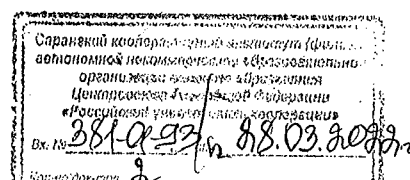 Саранский кооперативный институт (филиал)
автономной некоммерческой образовательной
организации высшего образования
Центросоюза Российской Федерации
«Российский университет кооперации»
Вх. № 381-01-93 28.03.2022г
Кол-во док-тов 2